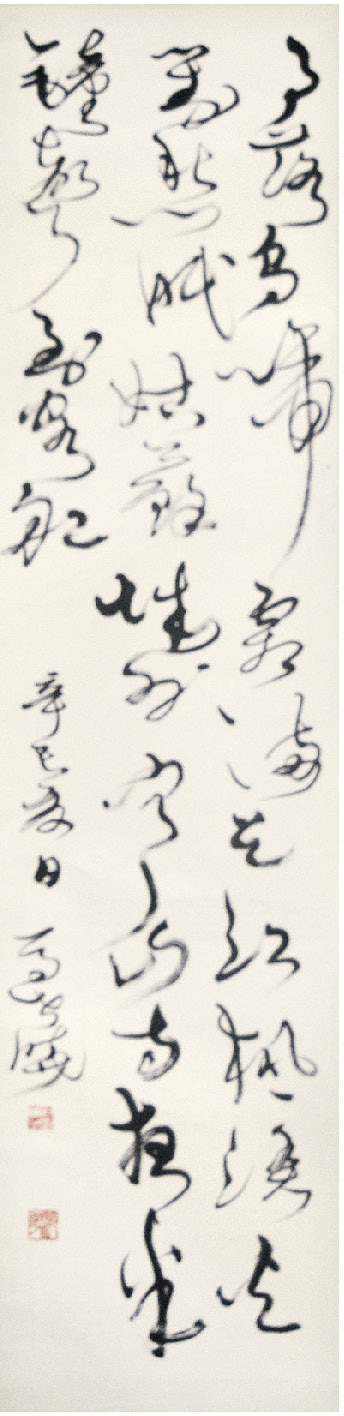 月落烏啼霜滿天江楓漁火
對愁眠姑蘇城外寒山寺夜半
鐘聲到客船
辛巳夏日